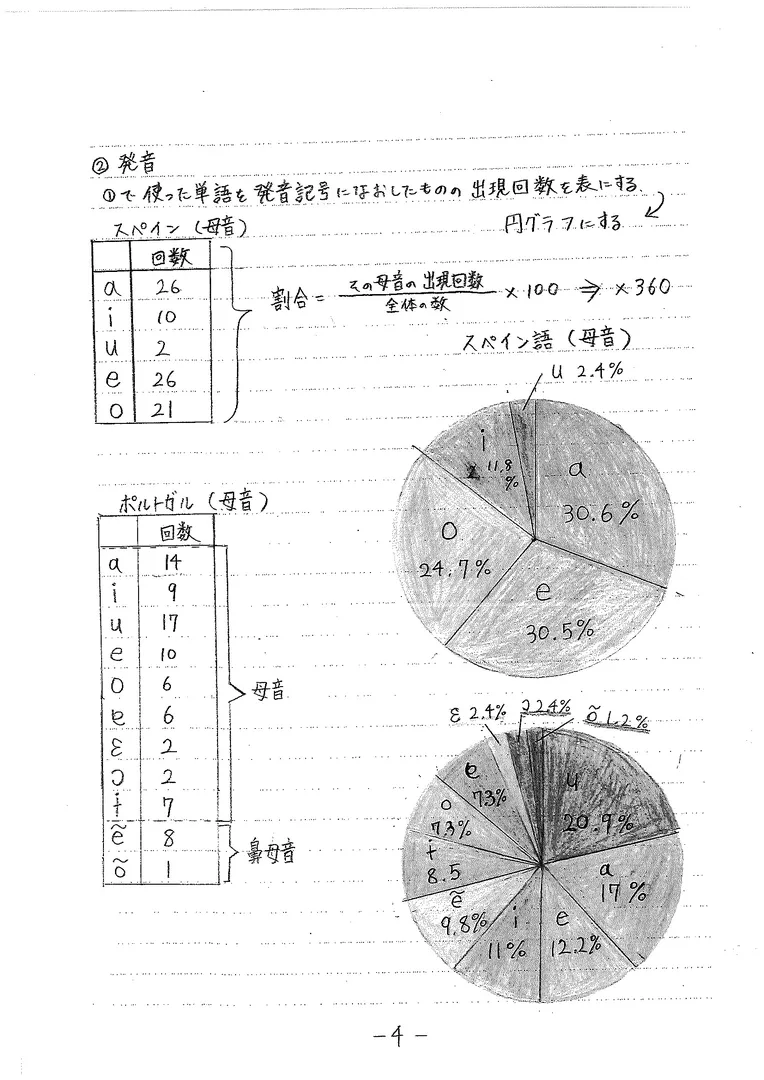 ② 発音
①で使った単語を発音記号になおしたものの出現回数を表にする.
円グラフにする
スペイン (母音)
回数
a 26
i 10
u 2
e 26
o 21
割合 = その母音の出現回数 / 全体の数 × 100 ⇒ × 360
スペイン語 (母音)
u 2.4%
i 11.8%
a 30.6%
o 24.7%
e 30.5%
ポルトガル (母音)
回数
a 14
i 9
u 17
e 10
o 6
ɐ 6
ɛ 2
ɔ 2
ɨ 7
母音
ẽ 8
õ 1
鼻母音
ɛ 2.4%
ɔ 2.4%
õ 1.2%
ɐ 7.3%
u 20.9%
o 7.3%
ɨ 8.5
a 17%
ẽ 9.8%
i 11%
e 12.2%
-4-